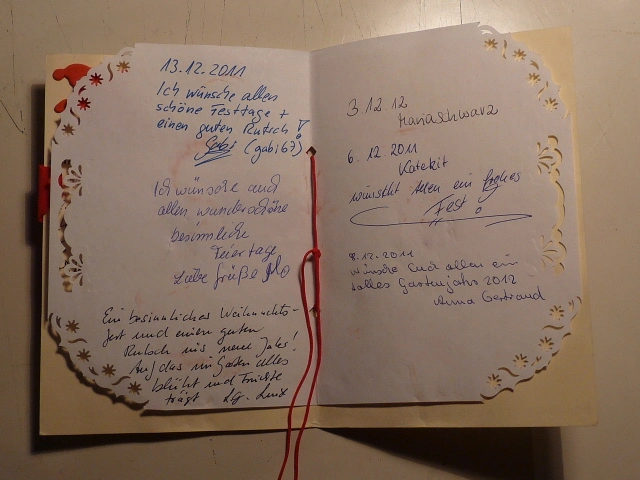 13.12.2011
Ich wünsche allen
schöne Festtage +
einen guten Rutsch!
Gabi (gabi67)
Ich wünsche auch
allen wunderschöne
besinnliche
Feiertage
Liebe Grüße
Ein besinnliches Weihnachts-
fest und einen guten
Rutsch ins neue Jahr!
Auf das im Garten alles
blüht und Früchte
trägt Lg.
3.12.12
mariaschwarz
6.12.2011
Katekit
wünscht Allen ein frohes
Fest!
8.12.2011
wünsche Euch allen ein
tolles Gartenjahr 2012
Anna Gertraud